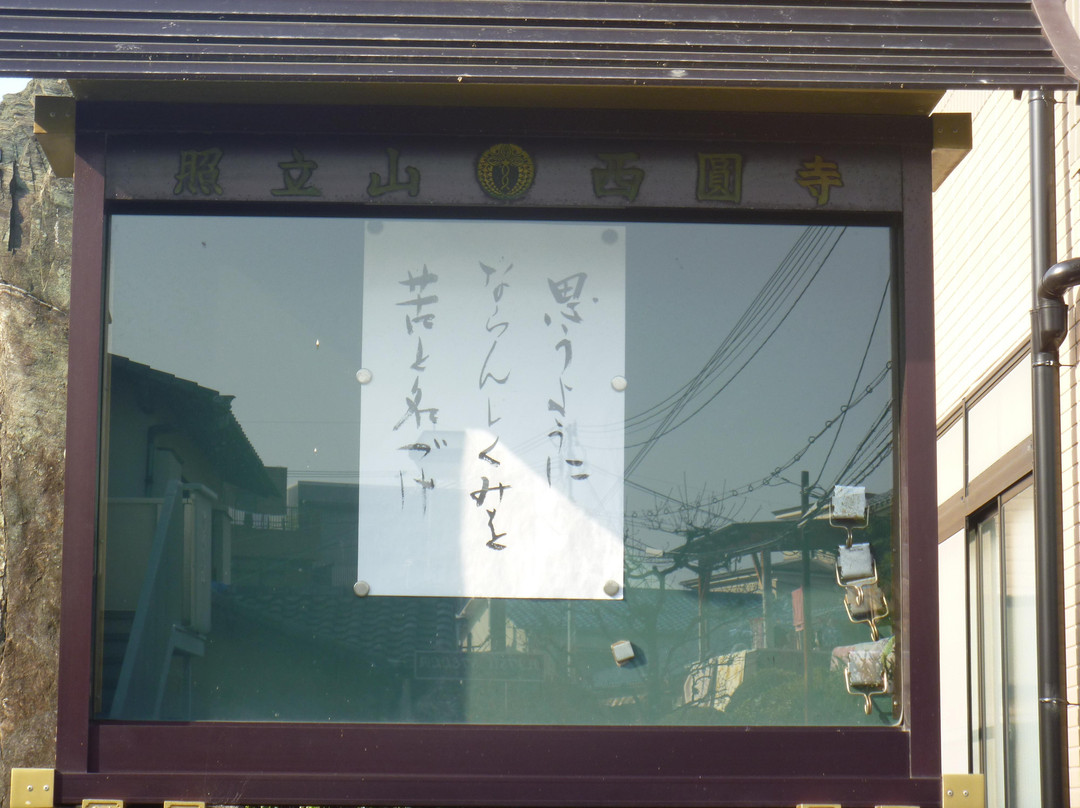 照立山 西圓寺
思うように
ならんしくみを
苦と名づけ